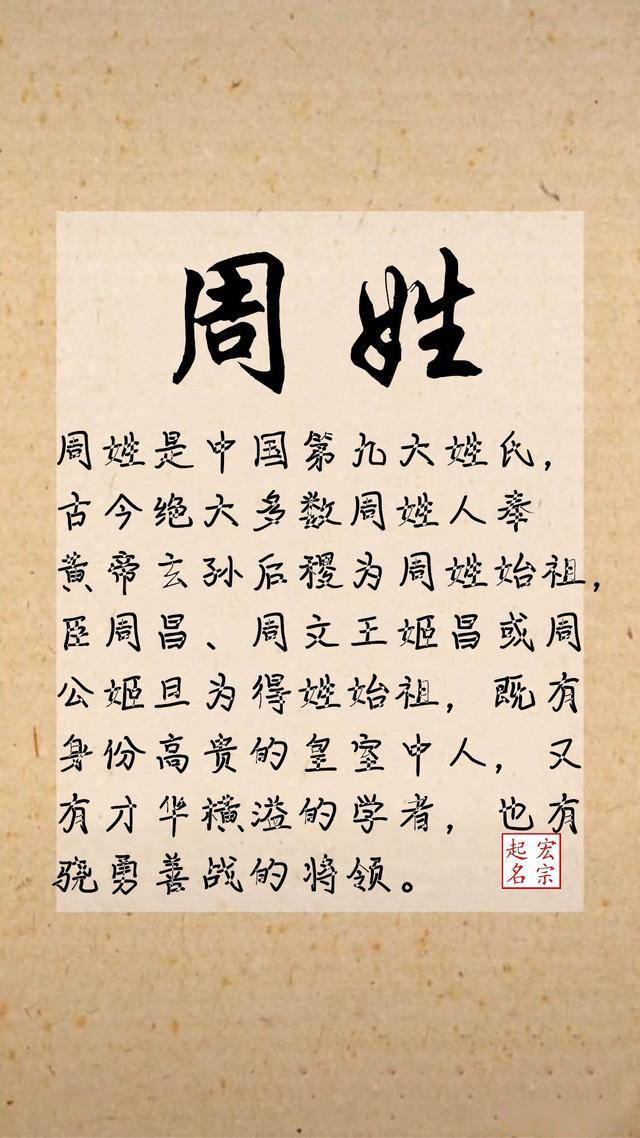 周姓
周姓是中国第九大姓氏，
古今绝大多数周姓人奉
黄帝玄孙后稷为周姓始祖，
臣周昌、周文王姬昌或周
公姬旦为得姓始祖，既有
身份高贵的皇室中人，又
有才华横溢的学者，也有
骁勇善战的将领。
宏宗
起名